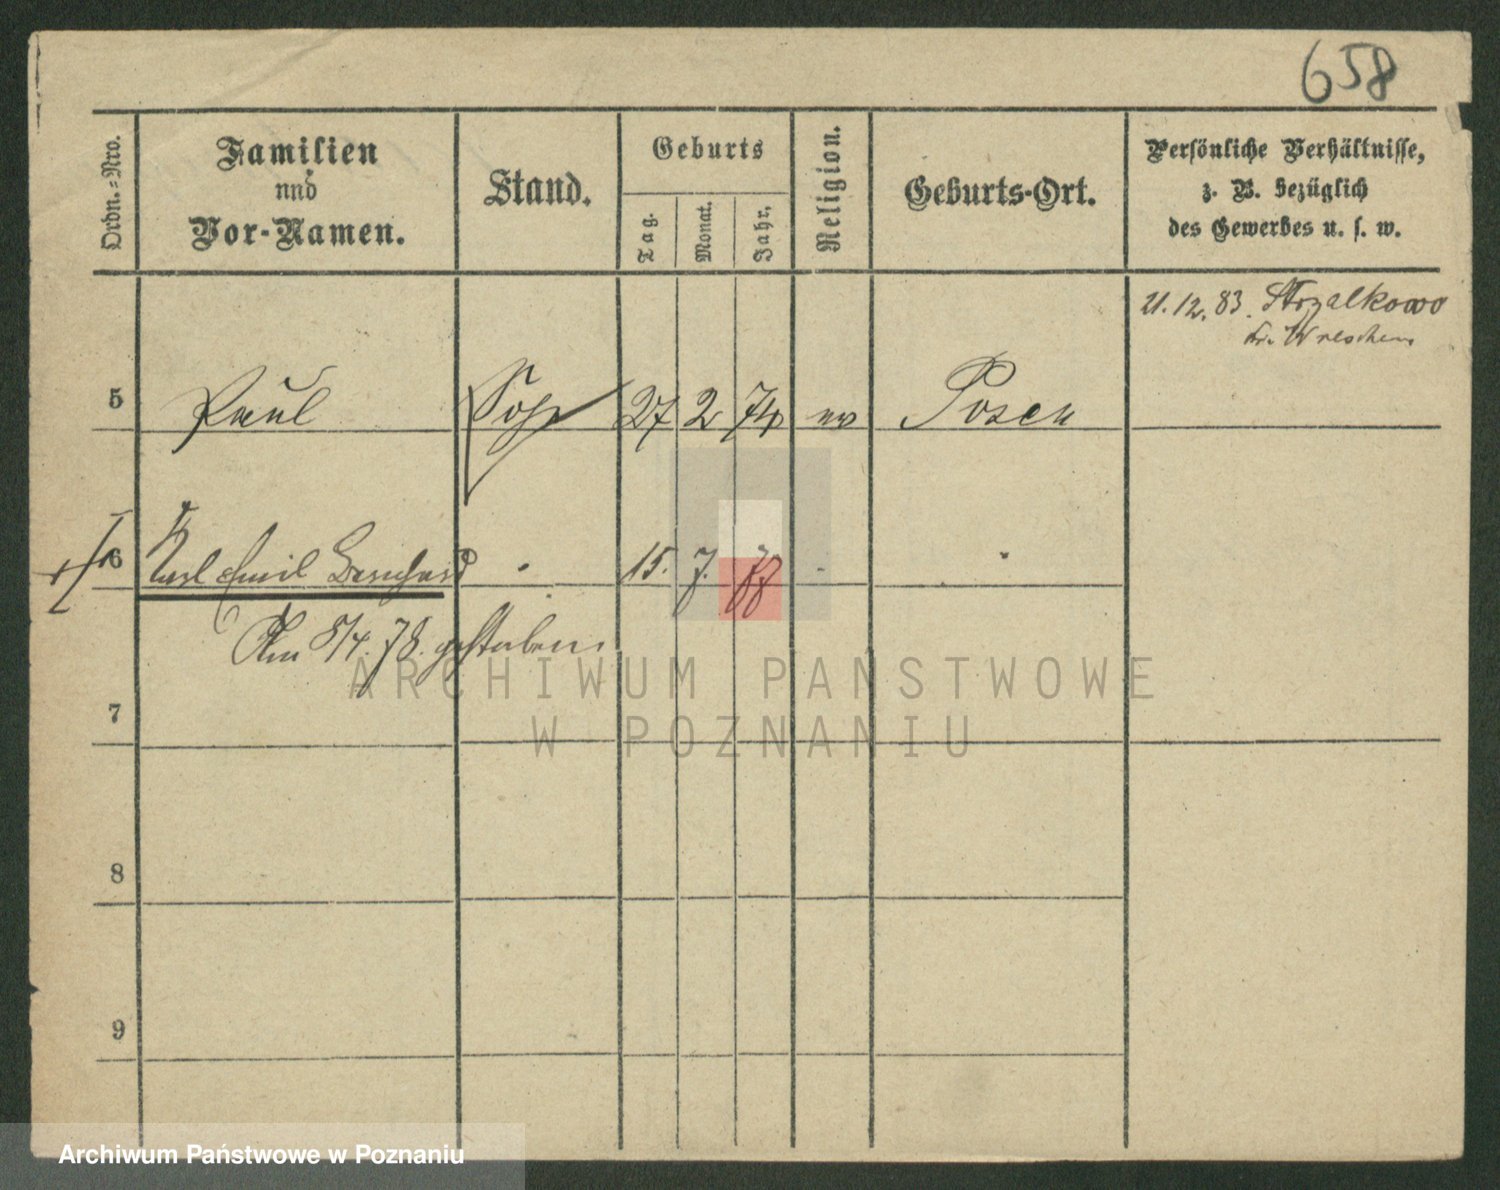 658
Ordn.=Nro.
Familien
und
Vor-Namen.
Stand.
Geburts
Tag.
Monat.
Jahr.
Religion.
Geburts-Ort.
Persönliche Verhältnisse,
z. B. bezüglich
des Gewerbes u. s. w.
11. 12. 83. Strzalkowo
Kr. Wreschen
5 Paul Sohn 27 2 74 ev Posen
6 Karl Emil Bernhard " 15. 7. 77 " "
Am 8/4. 78. gestorben.
7
8
9
ARCHIWUM PAŃSTWOWE
W POZNANIU
Archiwum Państwowe w Poznaniu